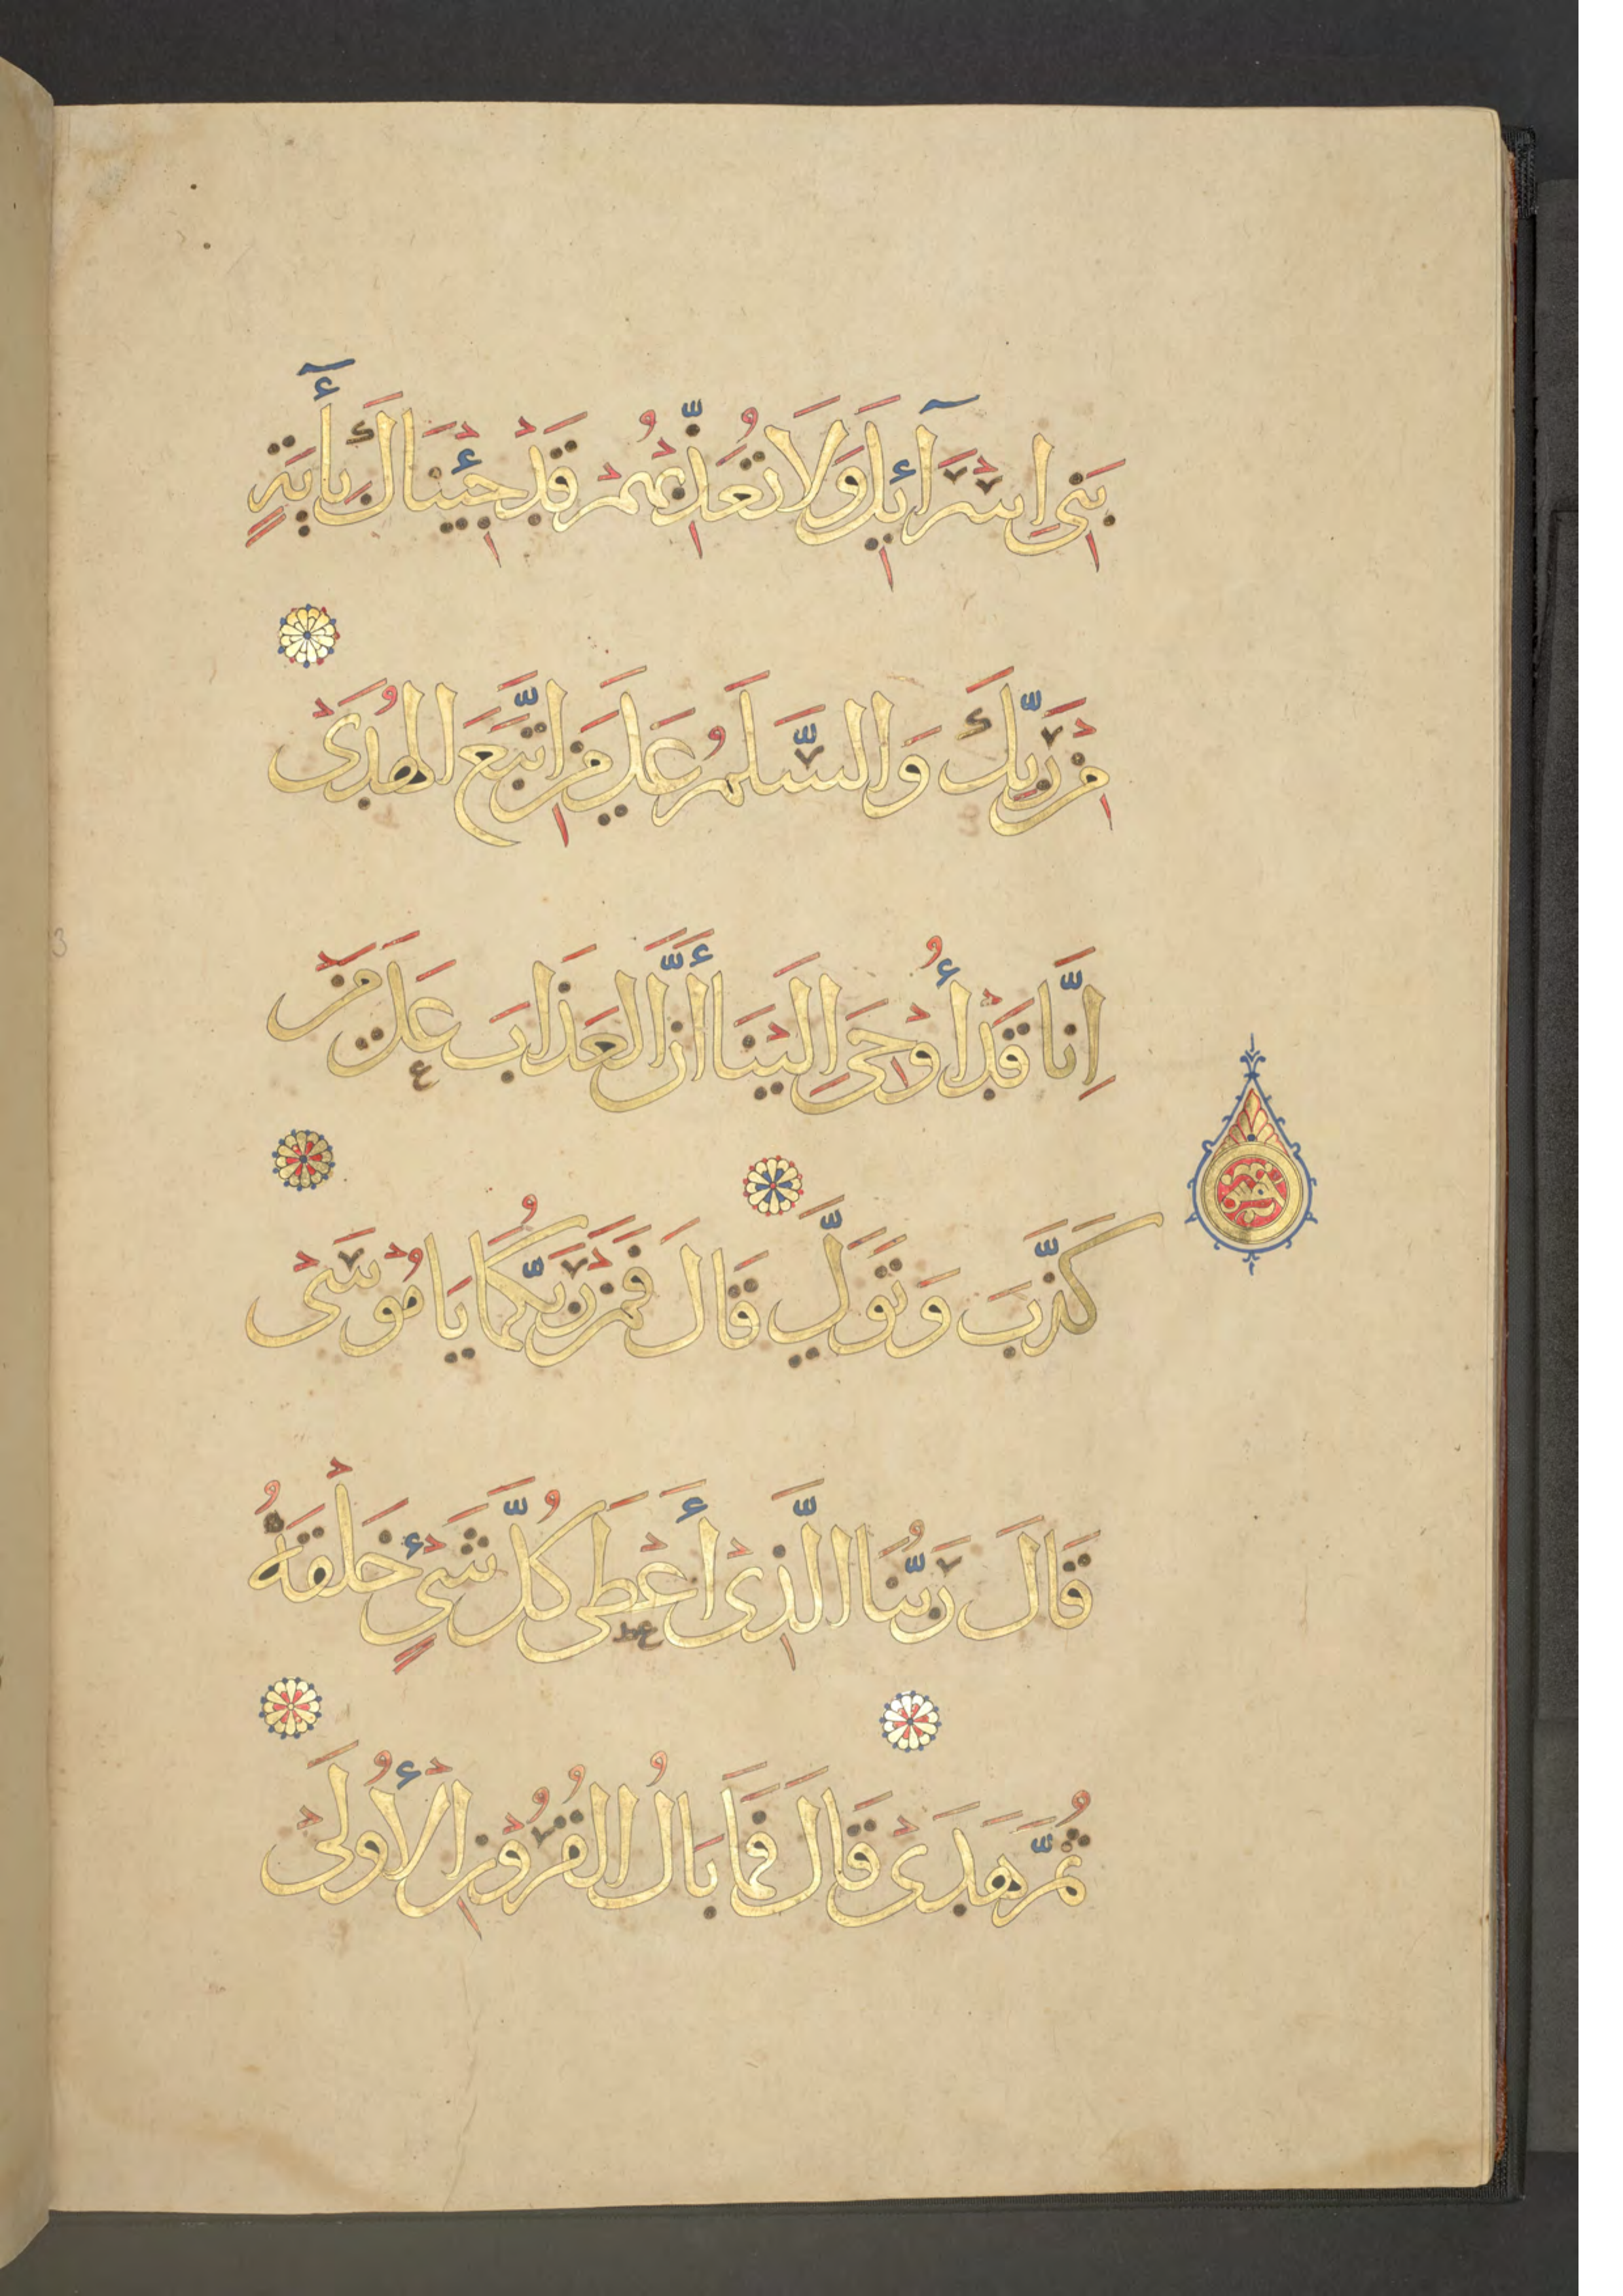 بَنِى اِسْرَآئِلَ وَلَا تُعَذِّبْهُمْ قَدْ جِئْنَاكَ بِأَيَةٍ
مِنْ رَبِّكَ وَالسَّلَمُ عَلَى مَنِ اتَّبَعَ الْهُدَىْ
اِنَّا قَدْ أُوْحِىَ اِلَيْنَا أَنَّ الْعَذَابَ عَلَى مَنْ
كَذَّبَ وَتَوَلَّى قَالَ فَمَنْ رَبُّكُمَا يَا مُوْسَىْ
قَالَ رَبُّنَا الَّذِىْ أَعْطَى كُلَّ شَىْءٍ خَلْقَهُ
ثُمَّ هَدَىْ قَالَ فَمَا بَالُ الْقُرُوْنِ الْأُولَىْ
خمس